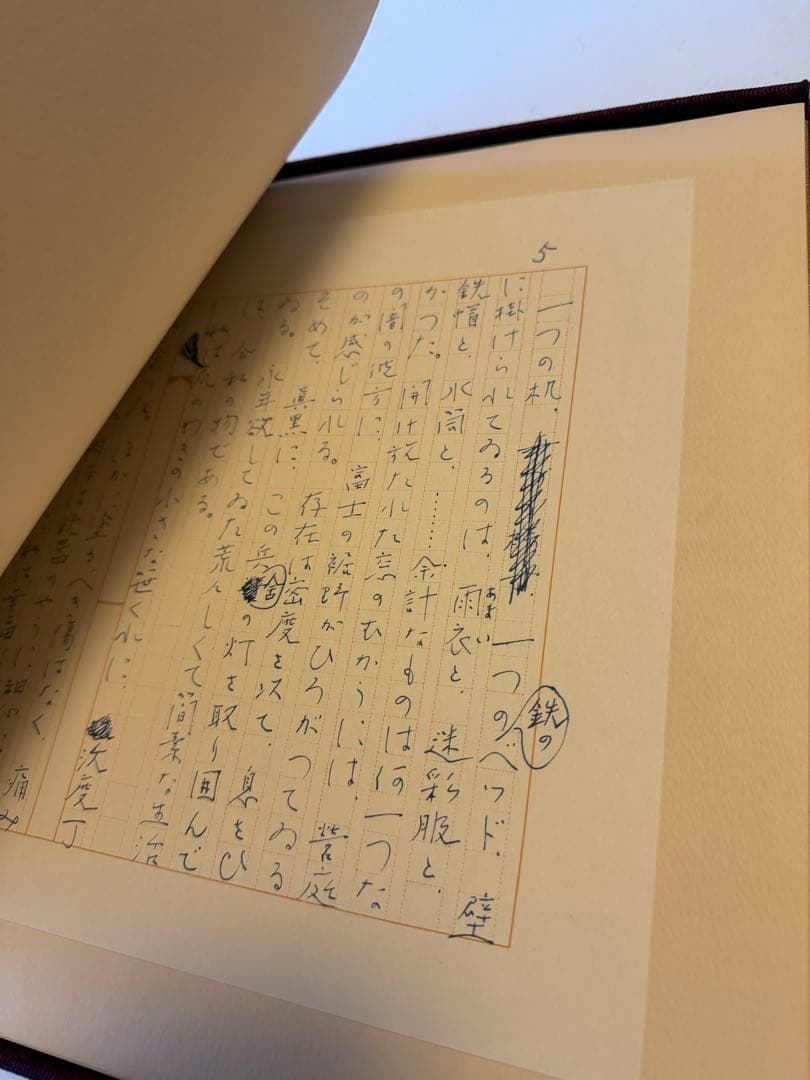 5
一つの机、一つの鉄のベッド、壁
に掛けられてゐるのは、雨衣と、迷彩服と、
あまい
鉄帽と、水筒と、……余計なものは何一つな
かつた。開け放たれた窓のむかうには、営庭
の闇の彼方に、富士の裾野がひろがつてゐる
のが感じられる。存在は密度を以て、息をひ
そめて、真黒に、この兵舎の灯を取り囲んで
ゐる。
永年欲してゐた荒々しくて簡素な生活
は、今私の物である。
爪のわきの小さな
次度丁
ほかに塗るべき
はなく、
痛み